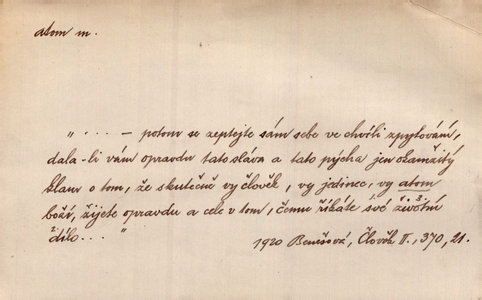 atom m.
„ . . . – potom se zeptejte sám sebe ve chvíli zpytování,
dala-li vám opravdu tato sláva a tato pýcha jen okamžitý
klam o tom, že skutečně vy člověk, vy jedinec, vy atom
boží, žijete opravdu a cele v tom, čemu říkáte své životní
dílo . . . "
1920 Benešová, Člověk II., 370, 21.